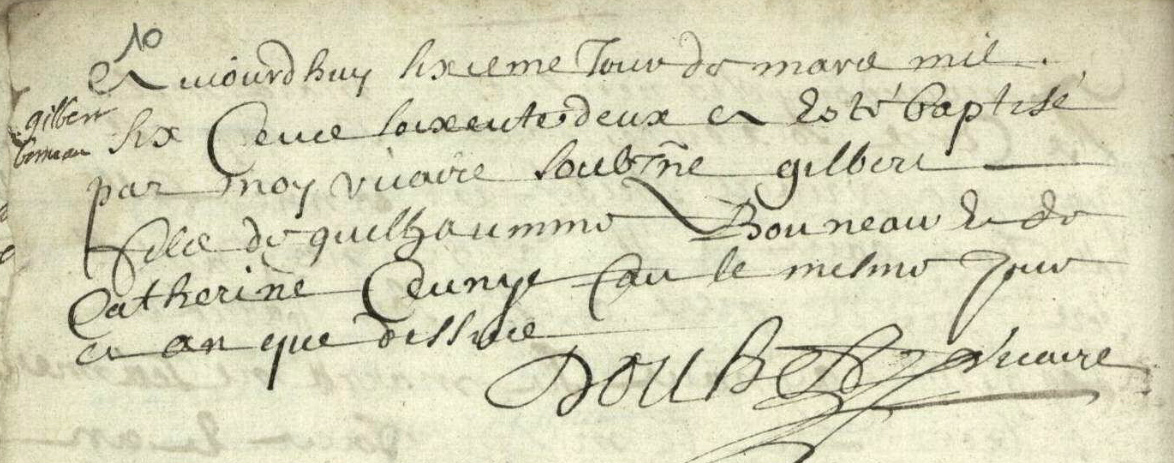 10
Aujourdhuy sixieme Jour de mars mil
gilbert
bonneau
six Cens soixente deux a Esté baptisé
par moy vicaire soubzne gilbert
filz de guilhaumme Bonneau & de
Catherine le mesme Jour
et an que dessus
Doubet vicaire